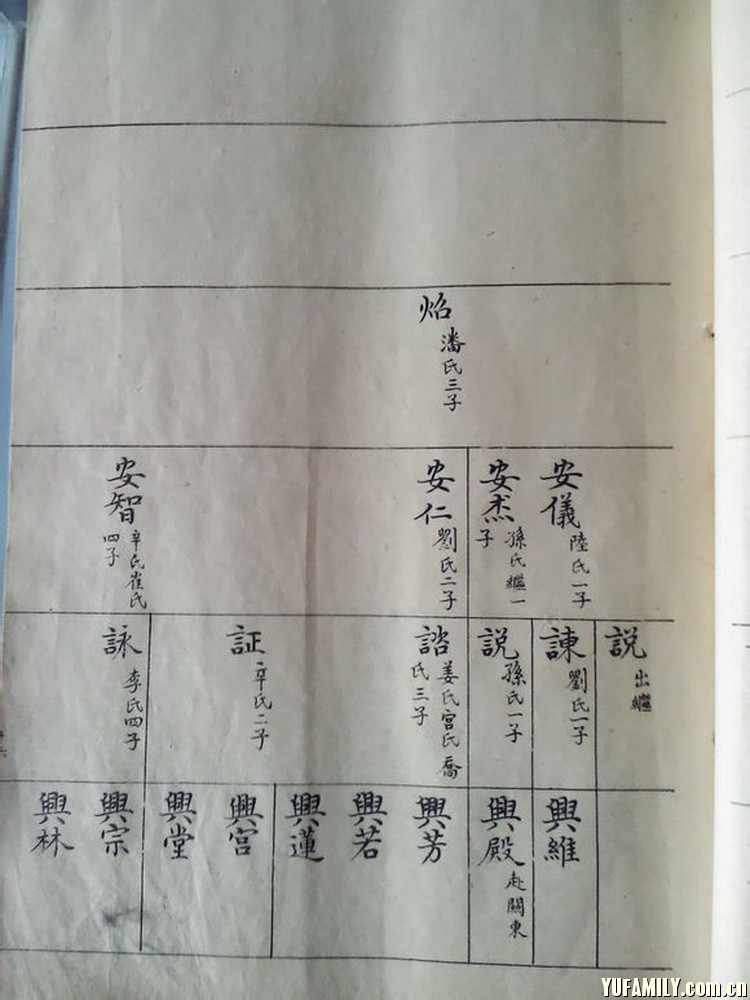 焰
潘氏三子
安儀
陸氏一子
安杰
孫氏繼一
子
安仁
劉氏二子
安智
辛氏崔氏
四子
説
出繼
諫
劉氏一子
説
孫氏一子
諮
姜氏宮氏喬
氏三子
証
辛氏二子
詠
李氏四子
興維
興殿
赴關東
興芳
興若
興蓮
興宮
興堂
興宗
興林
YUFAMILY.com.cn